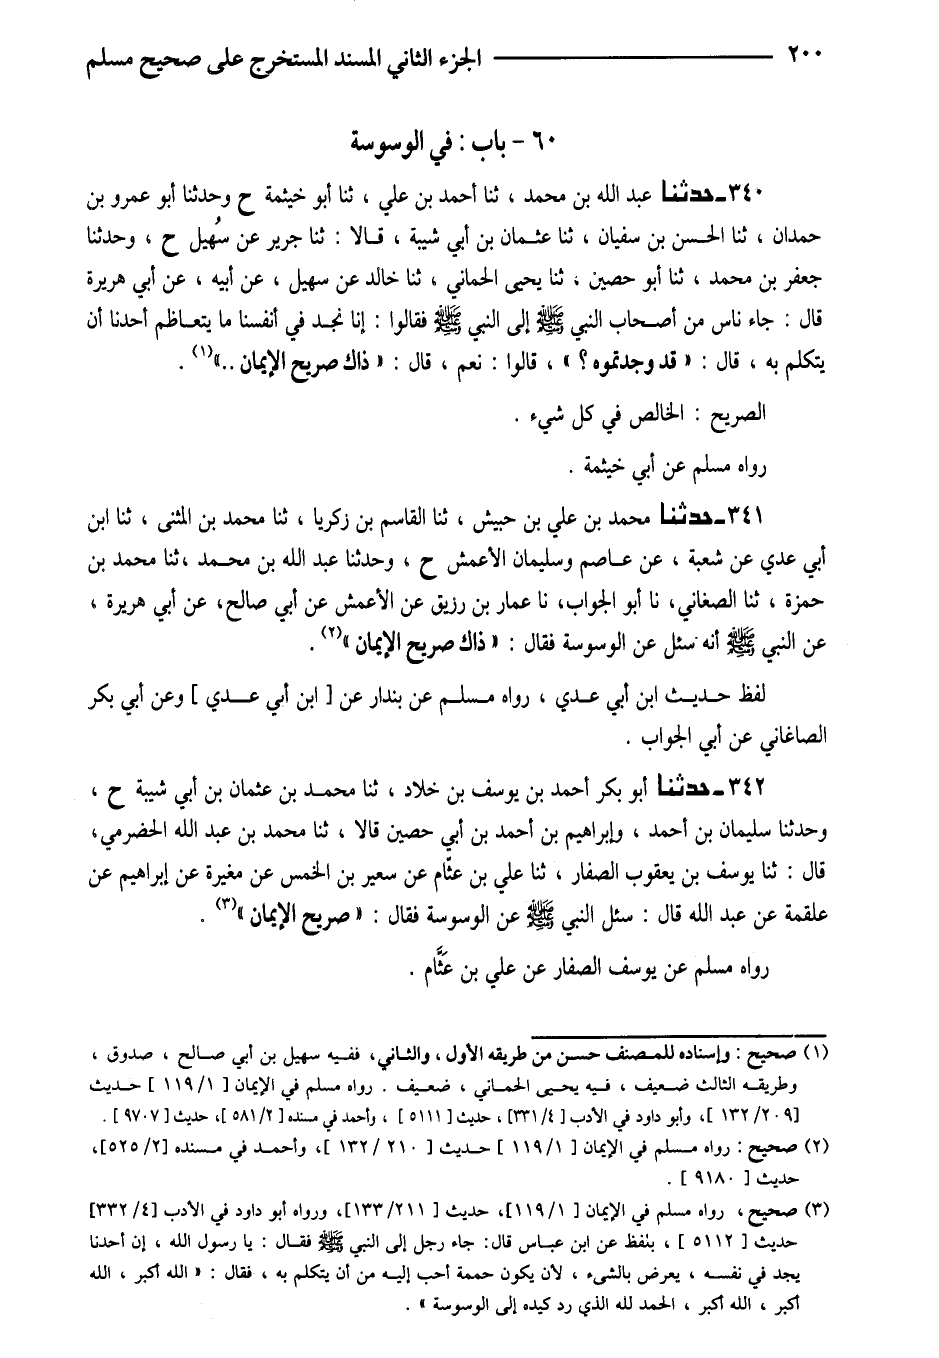 ٢٠٠ ــــــــــــــــــــ الجزء الثاني المسند المستخرج على صحيح مسلم
٦٠ - باب : في الوسوسة
٣٤٠ـ حدثنا عبد الله بن محمد ، ثنا أحمد بن علي ، ثنا أبو خيثمة ح وحدثنا أبو عمرو بن
حمدان ، ثنا الحسن بن سفيان ، ثنا عثمان بن أبي شيبة ، قالا : ثنا جرير عن سُهيل ح ، وحدثنا
جعفر بن محمد ، ثنا أبو حصين ، ثنا يحيى الحماني ، ثنا خالد عن سهيل ، عن أبيه ، عن أبي هريرة
قال : جاء ناس من أصحاب النبي ﷺ إلى النبي ﷺ فقالوا : إنا نجد في أنفسنا ما يتعاظم أحدنا أن
يتكلم به ، قال : « قد وجدتموه ؟ » ، قالوا : نعم ، قال : « ذاك صريح الإيمان ..»(١) .
الصريح : الخالص في كل شيء .
رواه مسلم عن أبي خيثمة .
٣٤١ـ حدثنا محمد بن علي بن حبيش ، ثنا القاسم بن زكريا ، ثنا محمد بن المثنى ، ثنا ابن
أبي عدي عن شعبة ، عن عاصم وسليمان الأعمش ح ، وحدثنا عبد الله بن محمد ،ثنا محمد بن
حمزة ، ثنا الصغاني، نا أبو الجواب، نا عمار بن رزيق عن الأعمش عن أبي صالح، عن أبي هريرة ،
عن النبي ﷺ أنه سئل عن الوسوسة فقال : « ذاك صريح الإيمان »(٢).
لفظ حديث ابن أبي عدي ، رواه مسلم عن بندار عن [ ابن أبي عدي ] وعن أبي بكر
الصاغاني عن أبي الجواب .
٣٤٢ـ حدثنا أبو بكر أحمد بن يوسف بن خلاد ، ثنا محمد بن عثمان بن أبي شيبة ح ،
وحدثنا سليمان بن أحمد ، وإبراهيم بن أحمد بن أبي حصين قالا ، ثنا محمد بن عبد الله الحضرمي،
قال : ثنا يوسف بن يعقوب الصفار ، ثنا علي بن عثّام عن سعير بن الخمس عن مغيرة عن إبراهيم عن
علقمة عن عبد الله قال : سئل النبي ﷺ عن الوسوسة فقال : « صريح الإيمان »(٣) .
رواه مسلم عن يوسف الصفار عن علي بن عَثَّام .
(١) صحيح : وإسناده للمصنف حسن من طريقه الأول ، والثاني، ففيه سهيل بن أبي صالح ، صدوق ،
وطريقه الثالث ضعيف ، فيه يحيى الحماني ، ضعيف . رواه مسلم في الإيمان [ ١/ ١١٩ ] حديث
[٢٠٩/ ١٣٢ ]، وأبو داود في الأدب [ ٤/ ٣٣١] ، حديث [ ٥١١١ ] ، وأحمد في مسنده [ ٢/ ٥٨١ ]، حديث [ ٩٧٠٧ ] .
(٢) صحيح : رواه مسلم في الإيمان [ ١/ ١١٩ ] حديث [ ٢١٠ / ١٣٢ ]، وأحمد في مسنده [٢/ ٥٢٥]،
حديث [ ٩١٨٠ ] .
(٣) صحيح ، رواه مسلم في الإيمان [ ١/ ١١٩]، حديث [ ٢١١/ ١٣٣]، ورواه أبو داود في الأدب [٤/ ٣٣٢]
حديث [ ٥١١٢ ] ، بلفظ عن ابن عباس قال: جاء رجل إلى النبي ﷺ فقال : يا رسول الله ، إن أحدنا
يجد في نفسه ، يعرض بالشيء ، لأن يكون حممة أحب إليه من أن يتكلم به ، فقال : « الله أكبر ، الله
أكبر ، الله أكبر ، الحمد لله الذي رد كيده إلى الوسوسة » .